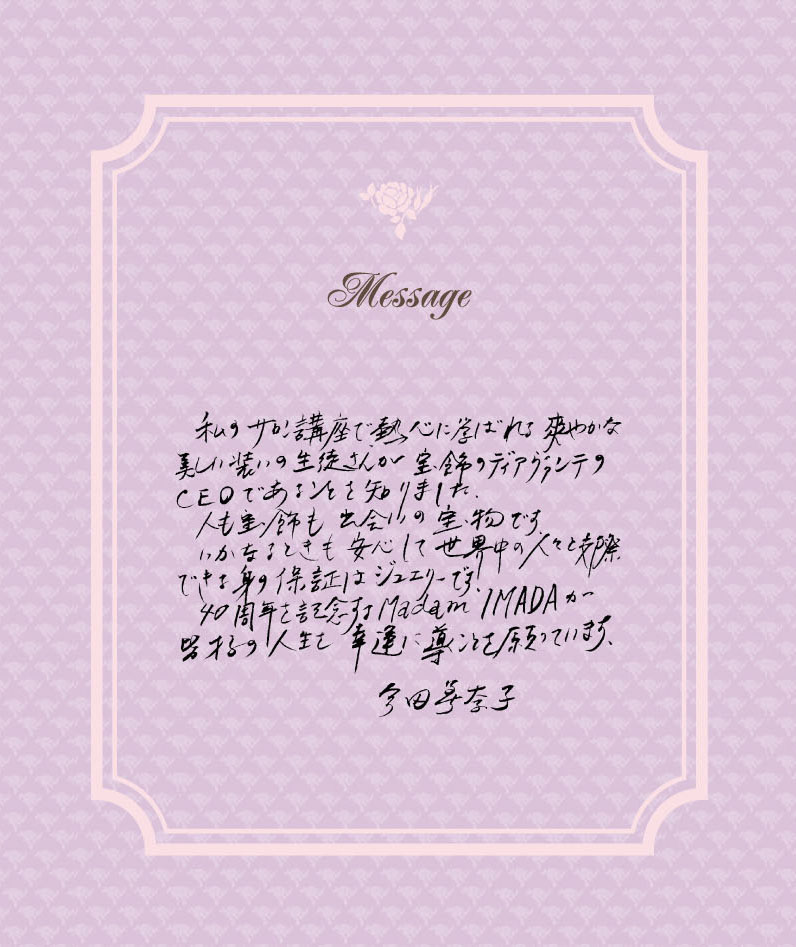 Message
私のサロン講座で熱心に学ばれる爽やかな
美しい装いの生徒さんが宝飾のディアヴァンテの
CEOであることを知りました。
人も宝飾も出会いの宝物です。
いかなるときも安心して世界中の人々と交際
できる身の保証はジュエリーです。
40周年を記念するMadam IMADAが
皆様の人生を幸運に導くことを願っています。
今田美奈子